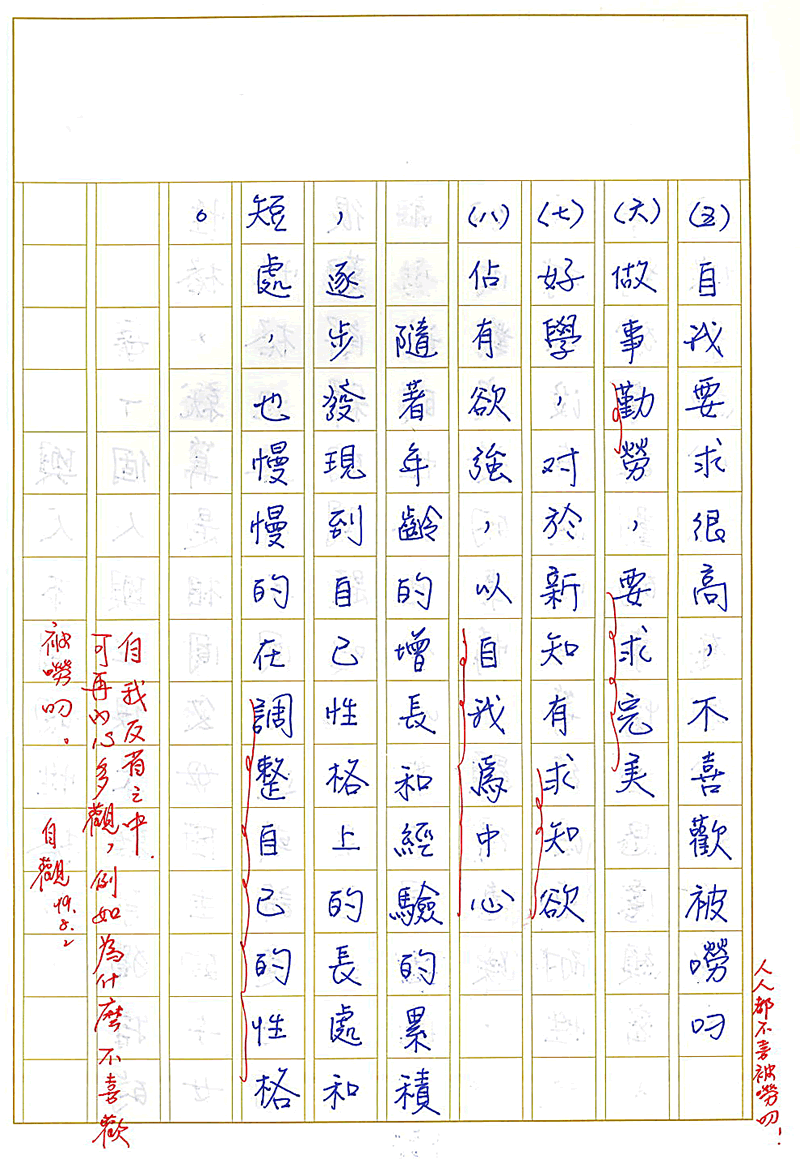 (五)自我要求很高,不喜歡被嘮叨
(六)做事勤勞,要求完美
(七)好學,对於新知有求知欲
(八)佔有欲強,以自我為中心
隨著年齡的增長和經驗的累積
,逐步發現到自己性格上的長處和
短處,也慢慢的在調整自己的性格
。
人人都不喜被嘮叨!
自我反省之中.
可再內心多觀,例如為什麼不喜歡
被嘮叨。
自觀